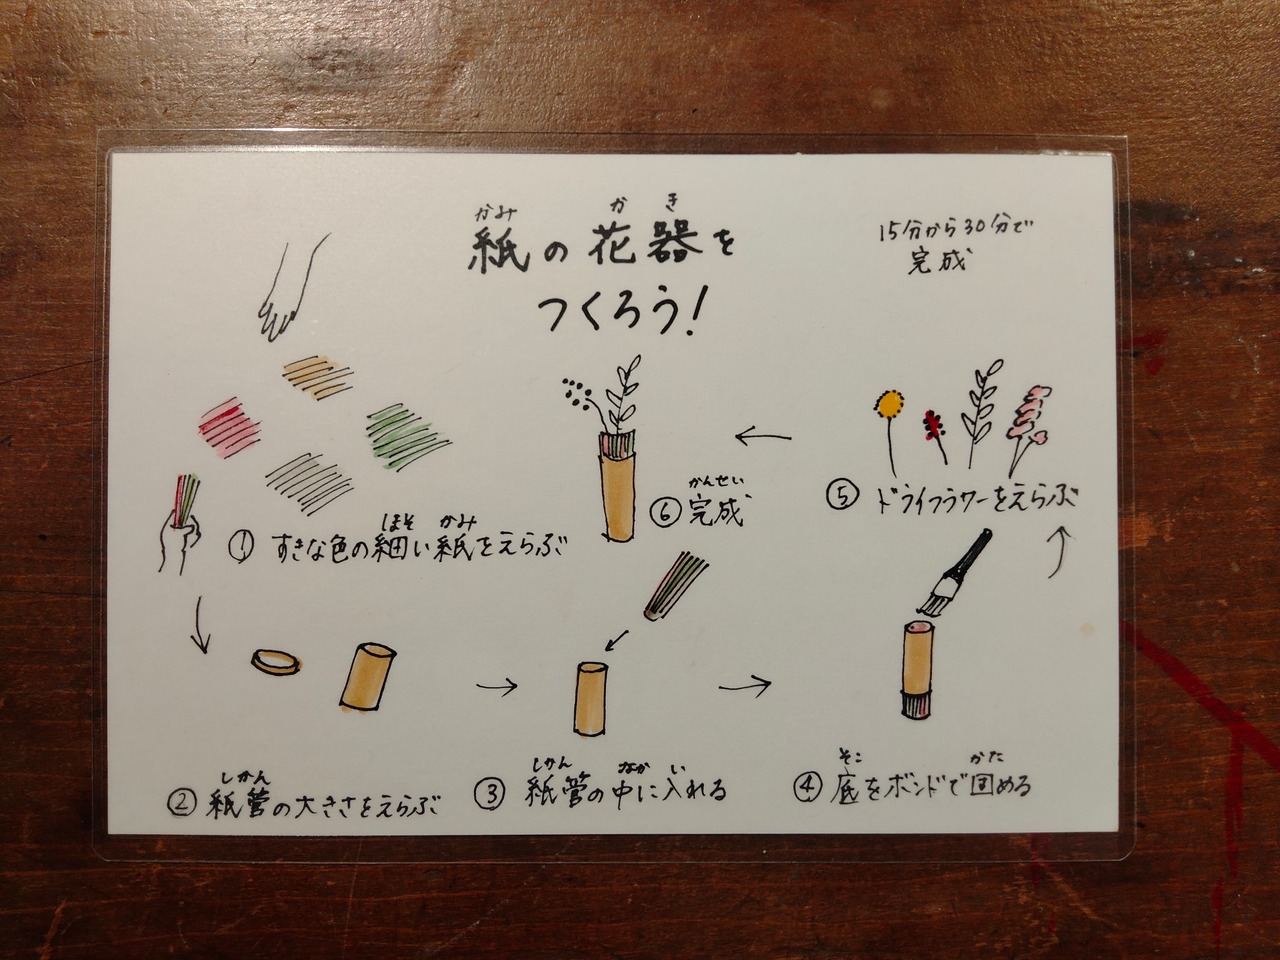 かみ かき
紙の花器を
つくろう!
15分から30分で
完成
ほそ かみ
① すきな色の細い紙をえらぶ
しかん
② 紙管の大きさをえらぶ
しかん なか い
③ 紙管の中に入れる
そこ かた
④ 底をボンドで固める
⑤ ドライフラワーをえらぶ
かんせい
⑥ 完成